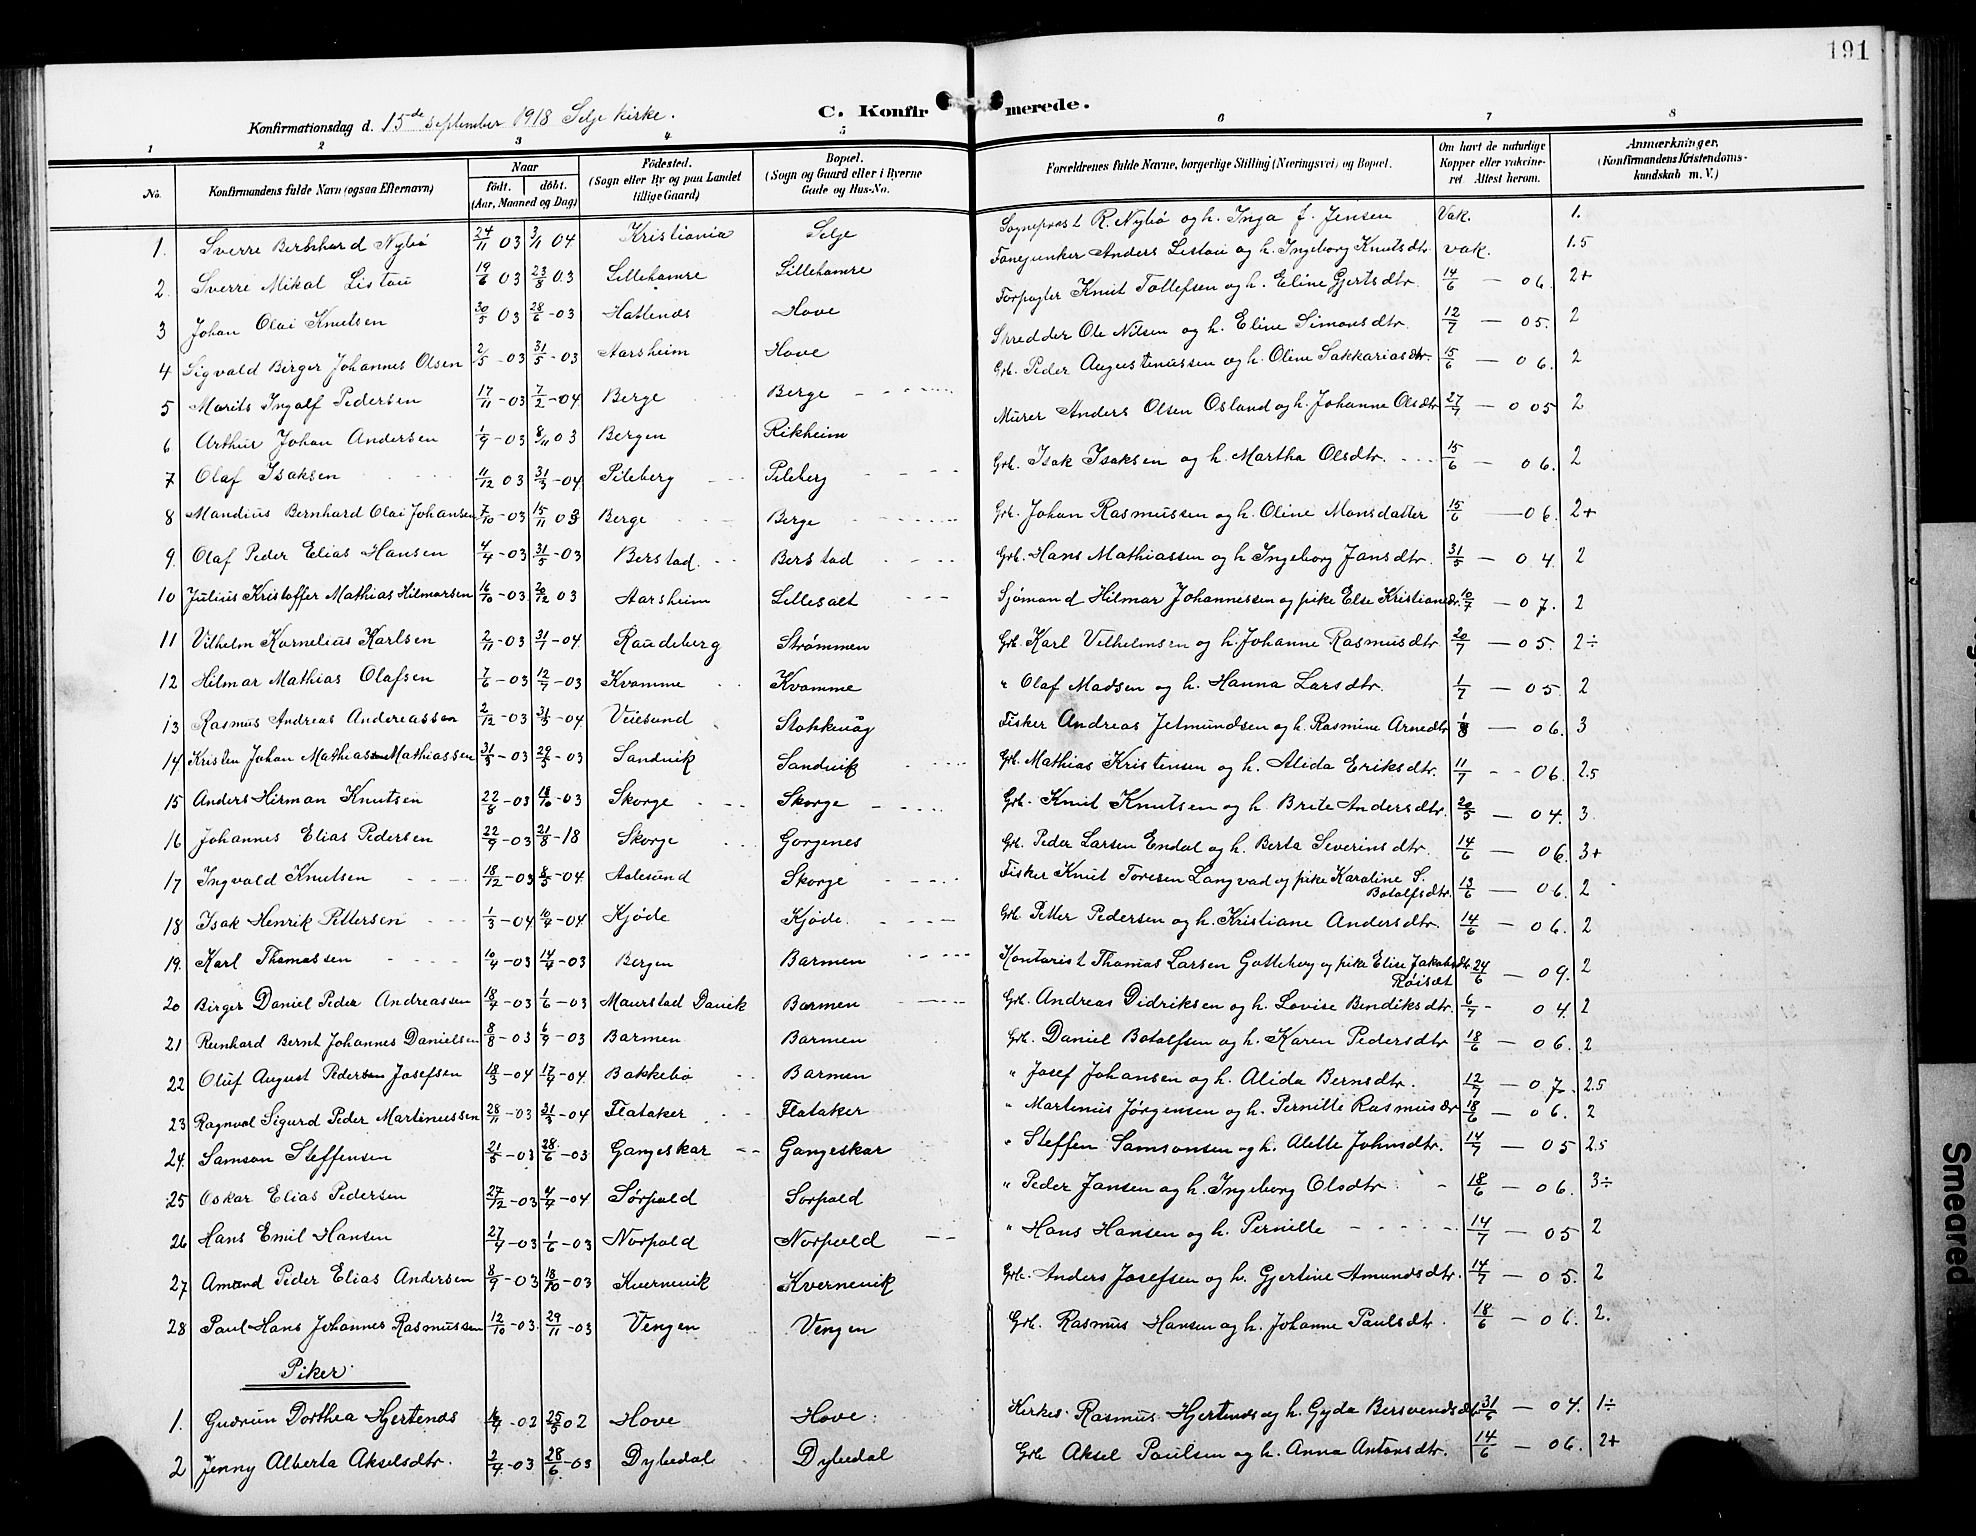 191
C. Konfirmerede.
Konfirmationsdag d. 15de september 1918 Selje kirke.
1 2 3 4 5 6 7 8
No. Konfirmandens fulde Navn (ogsaa Efternavn) Naar født. døbt. (Aar, Maaned og Dag) Fødested. (Sogn eller By og paa Landet tillige Gaard) Bopæl. (Sogn og Gaard eller i Byerne Gade og Hus-No. Forældrenes fulde Navne, borgerlige Stilling (Næringsvei) og Bopæl. Om havt de naturlige Kopper eller vakcineret. Attest herom. Anmærkninger. (Konfirmandens Kristendomskundskab m. V.)
1. Sverre Bernhard Nybø 24/11 03 3/1 04 Kristiania Selje Sogneprest R. Nybø og h. Inga f. Jensen Vak. 1.
2. Sverre Mikal Listau 19/6 03 23/8 03 Lillehamre Lillehamre Fanejunker Anders Listau og h. Ingeborg Knutsdtr vak. 1.5
3 Johan Olai Knutsen 30/5 03 28/6 -03 Hattenes Hove Forpagter Knut Tollefsen og h. Eline Gjertsdtr. 14/6 - 06. 2+
4 Sigvald Birger Johannes Olsen 2/5 -03 31/5 -03 Aarsheim Hove Skredder Ole Nilsen og h. Eline Simonsdtr. 12/7 - 05. 2
5 Morits Ingolf Pedersen 17/11 -03 7/2 -04 Berge Berge Grb. Peder Augustinussen og h. Oline Sakkariasdtr. 15/6 - 06. 2
6 Arthur Johan Andersen 1/9 -03 8/11 03 Bergen Rikheim Murer Anders Olsen Osland og h. Johanne Olsdtr 27/7 - 005 2
7 Olaf Isaksen 11/12 03 31/3 -04 Pileberg Pileberg Grb. Isak Isaksen og h. Martha Olsdtr. 15/6 - 06. 2
8 Mandius Bernhard Olai Johansen 7/10 -03 15/11 03 Berge Berge Grb. Johan Rasmussen og h. Oline Monsdatter 15/6 - 06. 2+
9. Olaf Peder Elias Hansen 4/4 -03 31/5 -03 Berstad. Berstad Grb. Hans Mathiassen og h Ingeborg Jansdtr. 31/5 - 04. 2
10 Julius Kristoffer Mathias Hilmarsen 16/10 -03 20/12 03 Aarsheim Lillesalt Sjømand Hilmar Johannessen og pike Else Kristiansdtr. 10/7 - 07. 2
11 Vilhelm Kornelius Karlsen 2/11 -03 31/1 -04. Raudeberg Strømmen Grb. Karl Vilhelmsen og h. Johanne Rasmusdtr 20/7 - 05. 2÷
12 Hilmar Mathias Olafsen 7/6 -03 12/7 -03 Kvamme Kvamme " Olaf Madsen og h. Hanna Larsdtr. 1/7 - 05. 2
13 Rasmus Andreas Andereassen 2/12 -03 31/3 -04 Veiesund Stokkevåg Fisker Andreas Jetmundsen og h. Rasmine Arnedtr 1/8 - 06. 3
14 Kristen Johan Mathiassen Mathiassen 31/3 -03 29/3 -03 Sandvik Sandvik Grb. Mathias Kristensen og h. Alida Eriksdtr. 11/7 - - 06. 2.5
15 Anders Hirman Knutsen 22/8 -03 18/10 -03 Skorge Skorge Grb. Knut Knutsen og h. Brite Andersdtr. 20/5 - 04. 3.
16 Johannes Elias Pedersen 22/9 -03 21/8 -18 Skorge Gorgenes Grb. Peder Larsen Endal og h. Berta Severinsdtr. 14/6 - 06. 3+
17 Ingvald Knutsen 18/12 -03 8/5 -04. Aalesund Skorge Fisker Knut Toresen Langvad og pike Karoline S. Botolfsdtr. 13/6 - 06. 2
18 Isak Henrik Pettersen 1/3 -04 10/4 -04 Kjøde Kjøde. Grb. Petter Pedersen og h. Kristiane Andersdtr. 14/6 - 06. 2
19. Karl Thomassen 10/4 -03 14/4 -03 Bergen Barmen Kontorist Thomas Larsen Gotteberg og pike Elise Jakobsdtr. Røiset 24/6 - 09. 2
20 Birger Daniel Peder Andreassen 18/4 -03 1/6 -03 Maurstad Davik Barmen Grb. Andreas Didriksen og h. Lovise Bendiksdtr. 6/7 - 04. 2
21 Reinhard Bernt Johannes Danielsen 8/8 -03 6/9 -03 Barmen Barmen Grb. Daniel Botolfsen og h. Karen Pedersdtr 18/6 - 06. 2
22 Oluf August Pedersen Josefsen 18/3 -04 17/4 -04. Bakkebø Barmen " Josef Johansen og h. Alida Bernsdtr. 12/7 - 07. 2.5
23 Ragnval Sigurd Peder Martinussen 28/11 -03 31/3 -04 Flataker Flataker " Martinus Jørgensen og h. Pernille Rasmusdtr 18/6 - 06. 2
24. Samson Steffensen 21/5 -03 28/6 -03 Gangeskar Gangeskar " Steffen Samsonsen og h. Alette Johnsdtr. 14/7 - 05 2.5
25 Oskar Elias Pedersen 27/12 -03 4/4 -04 Sørpold Sorpold " Peder Jansen og h. Ingeborg Olsdtr 18/6 - 06. 3÷
26 Hans Emil Hansen 27/4 -03 1/6 -03 Norpold Norpold " Hans Hansen og h. Pernille 14/7 - 05 2
27 Amund Peder Elias Andersen 8/9 -03 18/10 -03 Kvernevik Kvernevik Grb. Anders Josefsen og h. Gjertine Amundsdtr. 14/7 - 05. 2
28 Paul Hans Johannes Rasmussen 12/10 -03. 29/11 -03 Vengen Vengen Grb. Rasmus Hansen og h. Johanne Paulsdtr. 18/6 - 06. 2.
Piker
1. Gudrun Dorthea Hjertenes -02 25/5 02 Hove Hove. Kirkes. Rasmus Hjertenes og h. Gyda Bersvendsdtr 31/6 - 04. 1÷
2 Jenny Alberta Akselsdtr. 2/4 -03 28/6 -03 Dybedal Dybedal Grb Aksel Paulsen og h. Anna Antonsdtr. 14/6 - 06. 2+
Smeared